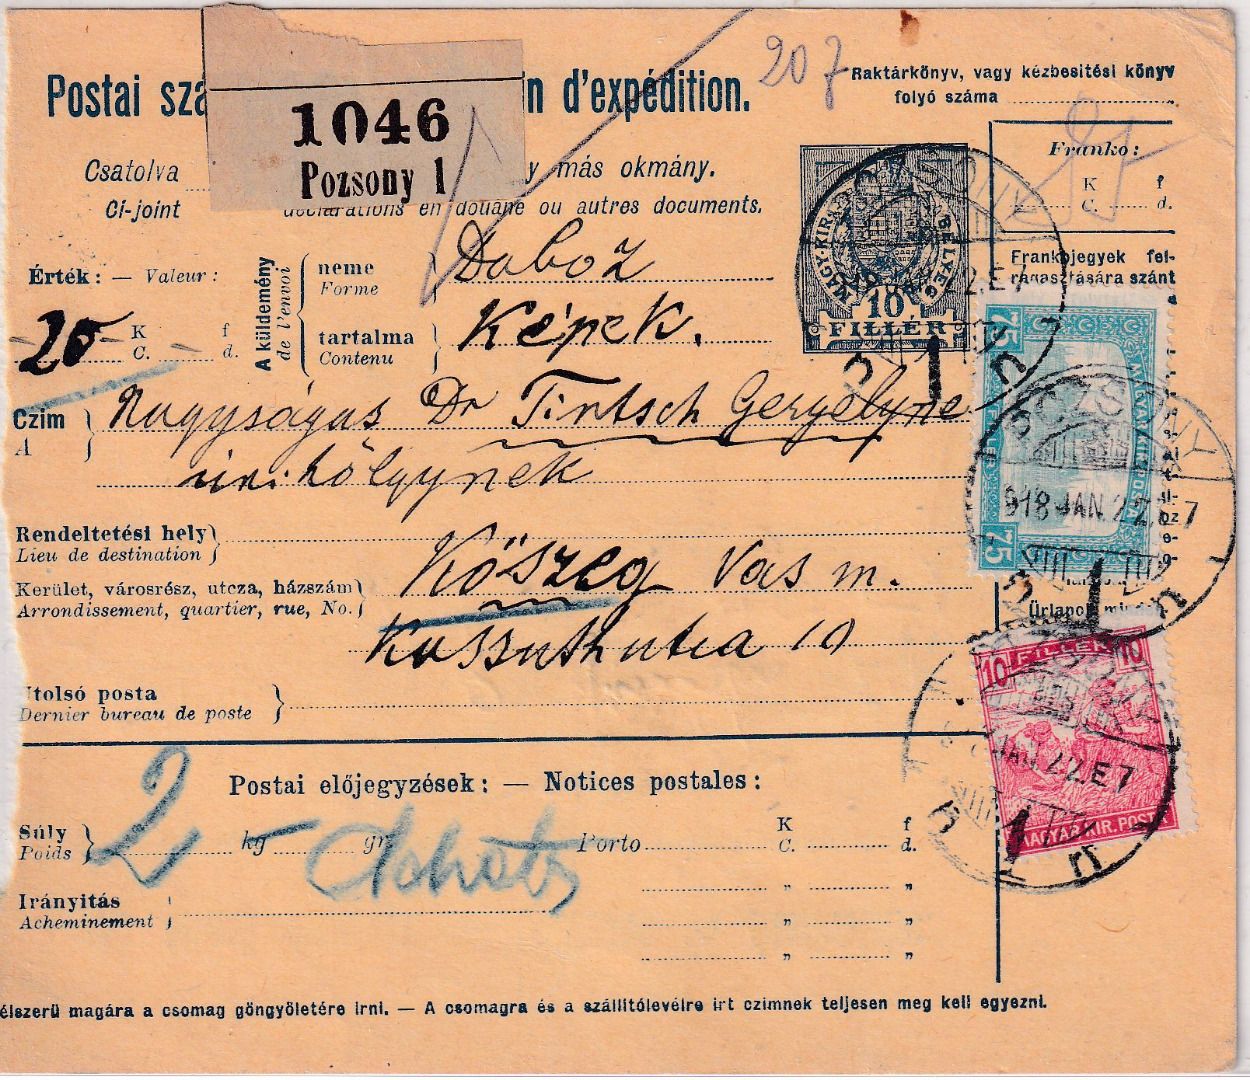 Postai szá
n d'expédition.
1046
Pozsony 1
207
Raktárkönyv, vagy kézbesitési könyv
folyó száma
Csatolva
y más okmány.
Ci-joint
déclarations en douane ou autres documents.
Franko:
K f
C. d.
Frankojegyek fel-
ragasztására szánt
MAGY. KIR.
BÉLYEG
10
FILLÉR
Érték: — Valeur:
20 K f
C. d.
A küldemény
de l'envoi
neme
Forme
Doboz
tartalma
Contenu
Képek.
Czim
A
Nagyságos Dr Tirtsch Gergelyne
úri hölgynek
75
75
POZSONY
918 JAN. 22. E 7
1
Rendeltetési hely
Lieu de destination
Kőszeg Vas m.
Kerület, városrész, utcza, házszám
Arrondissement, quartier, rue, No.
Kossuth utca 10
Utolsó posta
Dernier bureau de poste
10 FILLÉR 10
MAGYAR KIR. POSTA
JAN. 22. E 7
1
Postai előjegyzések: — Notices postales:
Súly
Poids
2 kg gr
Porto
K f
C. d.
Irányitás
Acheminement
" "
" "
" "
élszerü magára a csomag göngyöletére irni. — A csomagra és a szállitólevélre irt czimnek teljesen meg kell egyezni.